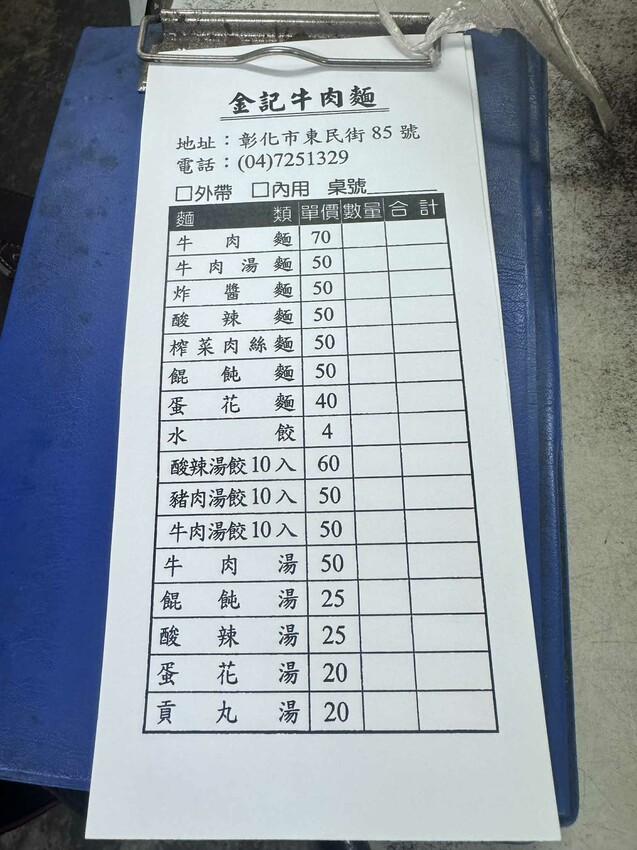 金記牛肉麵
地址：彰化市東民街85號
電話：(04)7251329
□外帶 □內用 桌號________
麵類 單價 數量 合計
牛肉麵 70
牛肉湯麵 50
炸醬麵 50
酸辣麵 50
榨菜肉絲麵 50
餛飩麵 50
蛋花麵 40
水餃 4
酸辣湯餃10入 60
豬肉湯餃10入 50
牛肉湯餃10入 50
牛肉湯 50
餛飩湯 25
酸辣湯 25
蛋花湯 20
貢丸湯 20